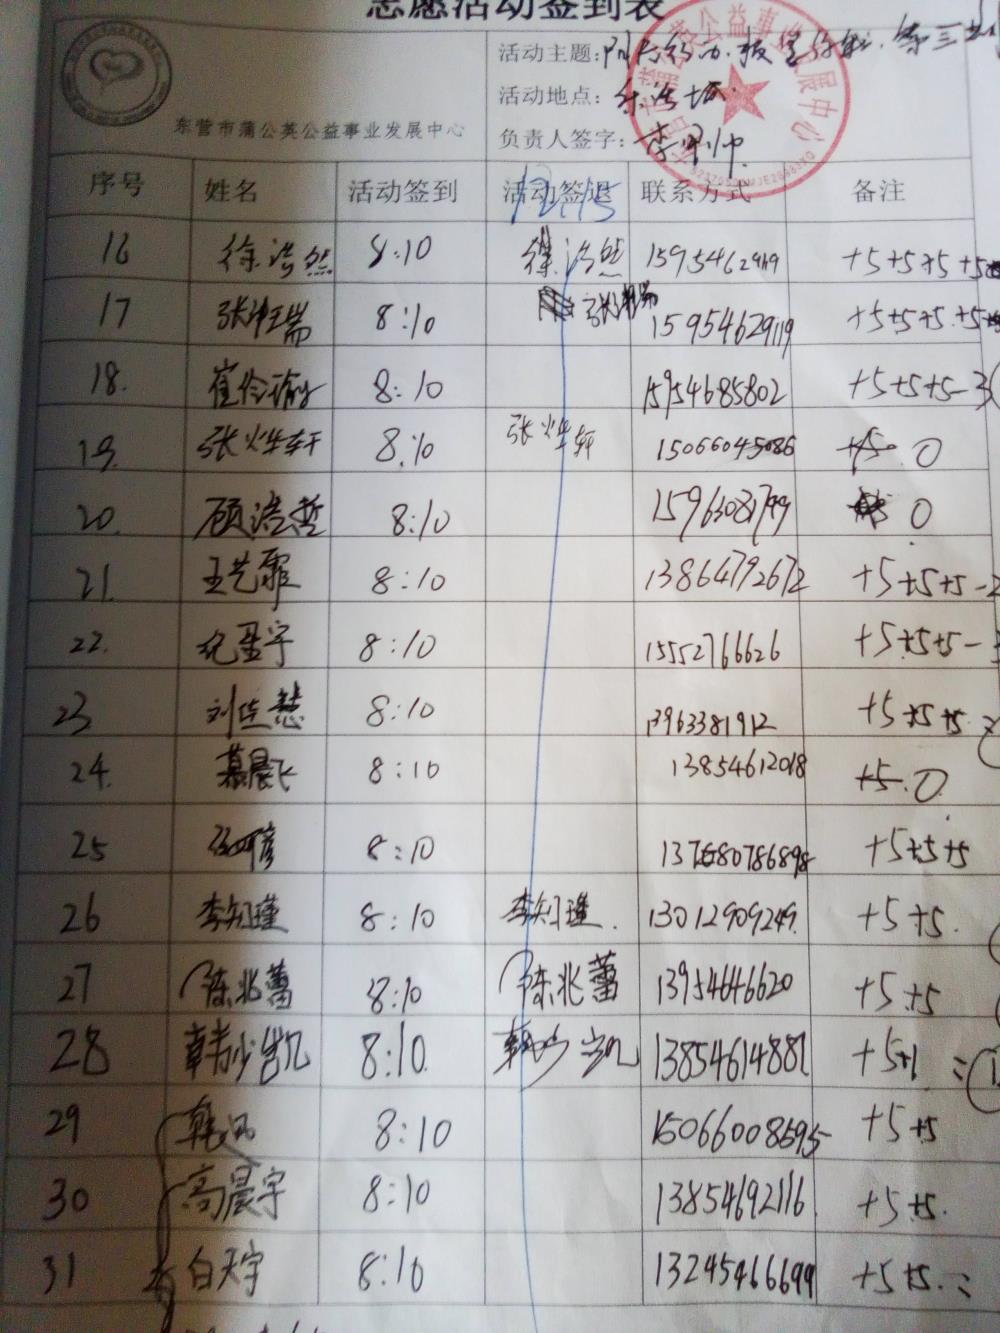 志愿活动签到表
活动主题: 第三批
活动地点:
东营市蒲公英公益事业发展中心
负责人签字: 李
序号 姓名 活动签到 活动签退 联系方式 备注
12:15
16 徐浩然 8:10 徐浩然 15954629119 +5+5+5+5
17 张 瑞 8:10 张 瑞 15954629119 +5+5+5+5
18. 崔伶瑜 8:10 15954685802 +5+5+5-3
19. 张烨轩 8:10 张烨轩 15066045086 +5 0
20. 顾浩哲 8:10 15963081799 0
21. 王艺霏 8:10 13864792672 +5+5+5-2
22. 纪 宇 8:10 15552766626 +5+5+5-
23 刘佐慧 8:10 13963381912 +5+5+5
24. 慕晨飞 8:10 13854612018 +5 0
25 8:10 +5+5+5
26 李知瑾 8:10 李知瑾. 13012909249 +5+5.
27 陈兆蕾 8:10 陈兆蕾 13954646620 +5+5
28 韩少凯 8:10. 韩少凯 13854614881 +5+1
29 韩 8:10 15066008595 +5+5
30 高晨宇 8:10 13854692116 +5+5.
31 白天宇 8:10 13245466699 +5+5.